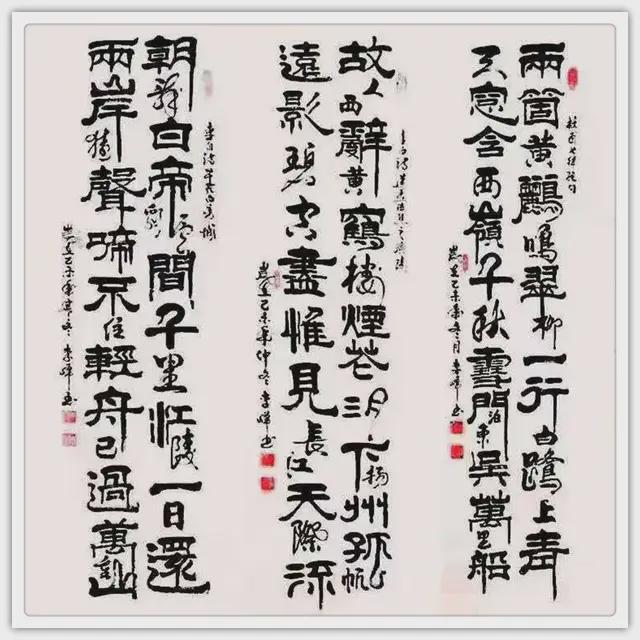 兩箇黃鸝鳴翠柳一行白鷺上青
天窓含西嶺千秋雪門泊東吳萬里船
歲在乙未年冬月
故人西辭黃鶴樓煙花三月下揚州孤帆
遠影碧空盡惟見長江天際流
歲在乙未年仲冬
李白詩早發白帝城
朝辭白帝彩雲間千里江陵一日還
兩岸猿聲啼不住輕舟已過萬重山